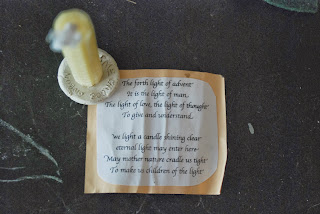 The forth light of advent
It is the light of man,
The light of love, the light of thought
To give and understand.
We light a candle shining clear
eternal light may enter here
May mother nature cradle us tight
To make us children of the light